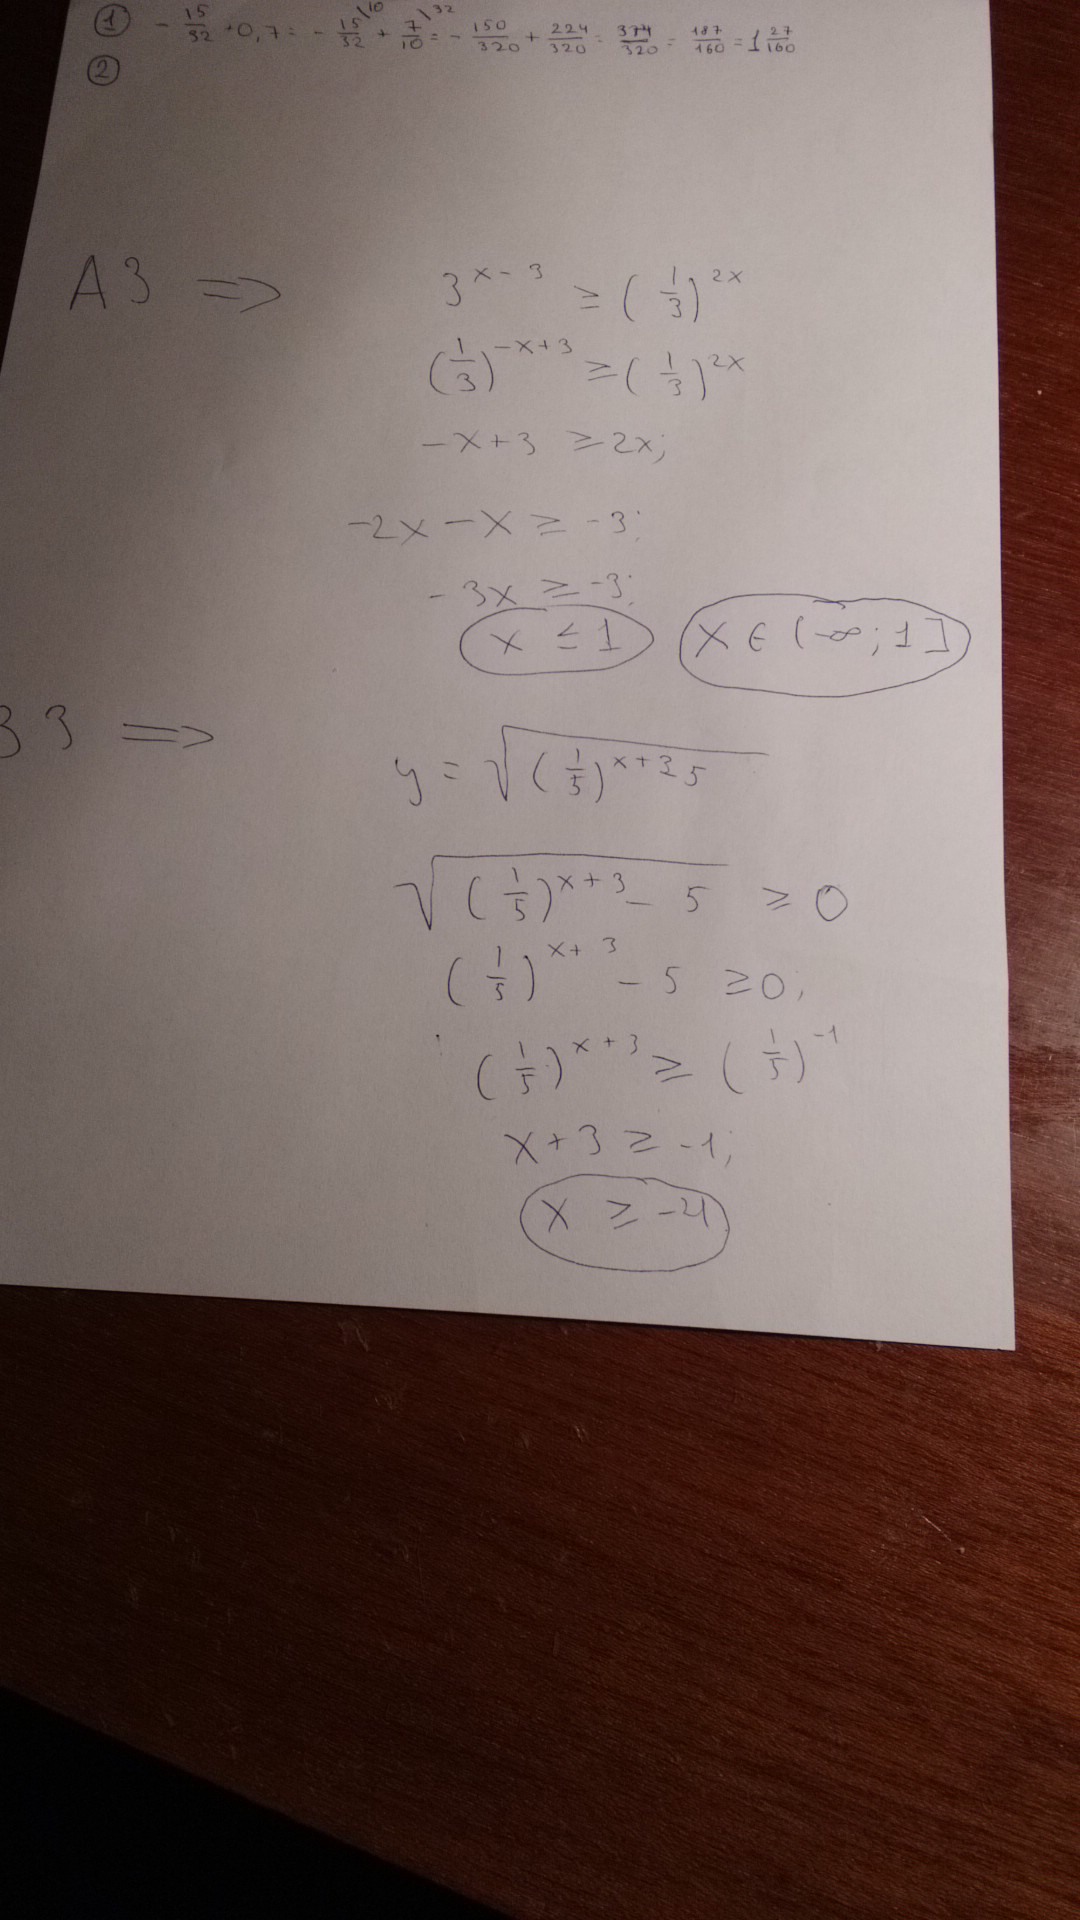 ① - 15/32 + 0,7 = - 15/32 \10 + 7/10 \32 = - 150/320 + 224/320 = 374/320 = 187/160 = 1 27/160
②
A3 ⇒ 3^(x-3) ≥ (1/3)^(2x)
(1/3)^(-x+3) ≥ (1/3)^(2x)
-x+3 ≥ 2x;
-2x - x ≥ -3;
-3x ≥ -3;
x ≤ 1 x ∈ (-∞; 1]
B3 ⇒ y = √((1/5)^(x+3) - 5)
√((1/5)^(x+3) - 5) ≥ 0
(1/5)^(x+3) - 5 ≥ 0;
(1/5)^(x+3) ≥ (1/5)^(-1)
x+3 ≥ -1;
x ≥ -4